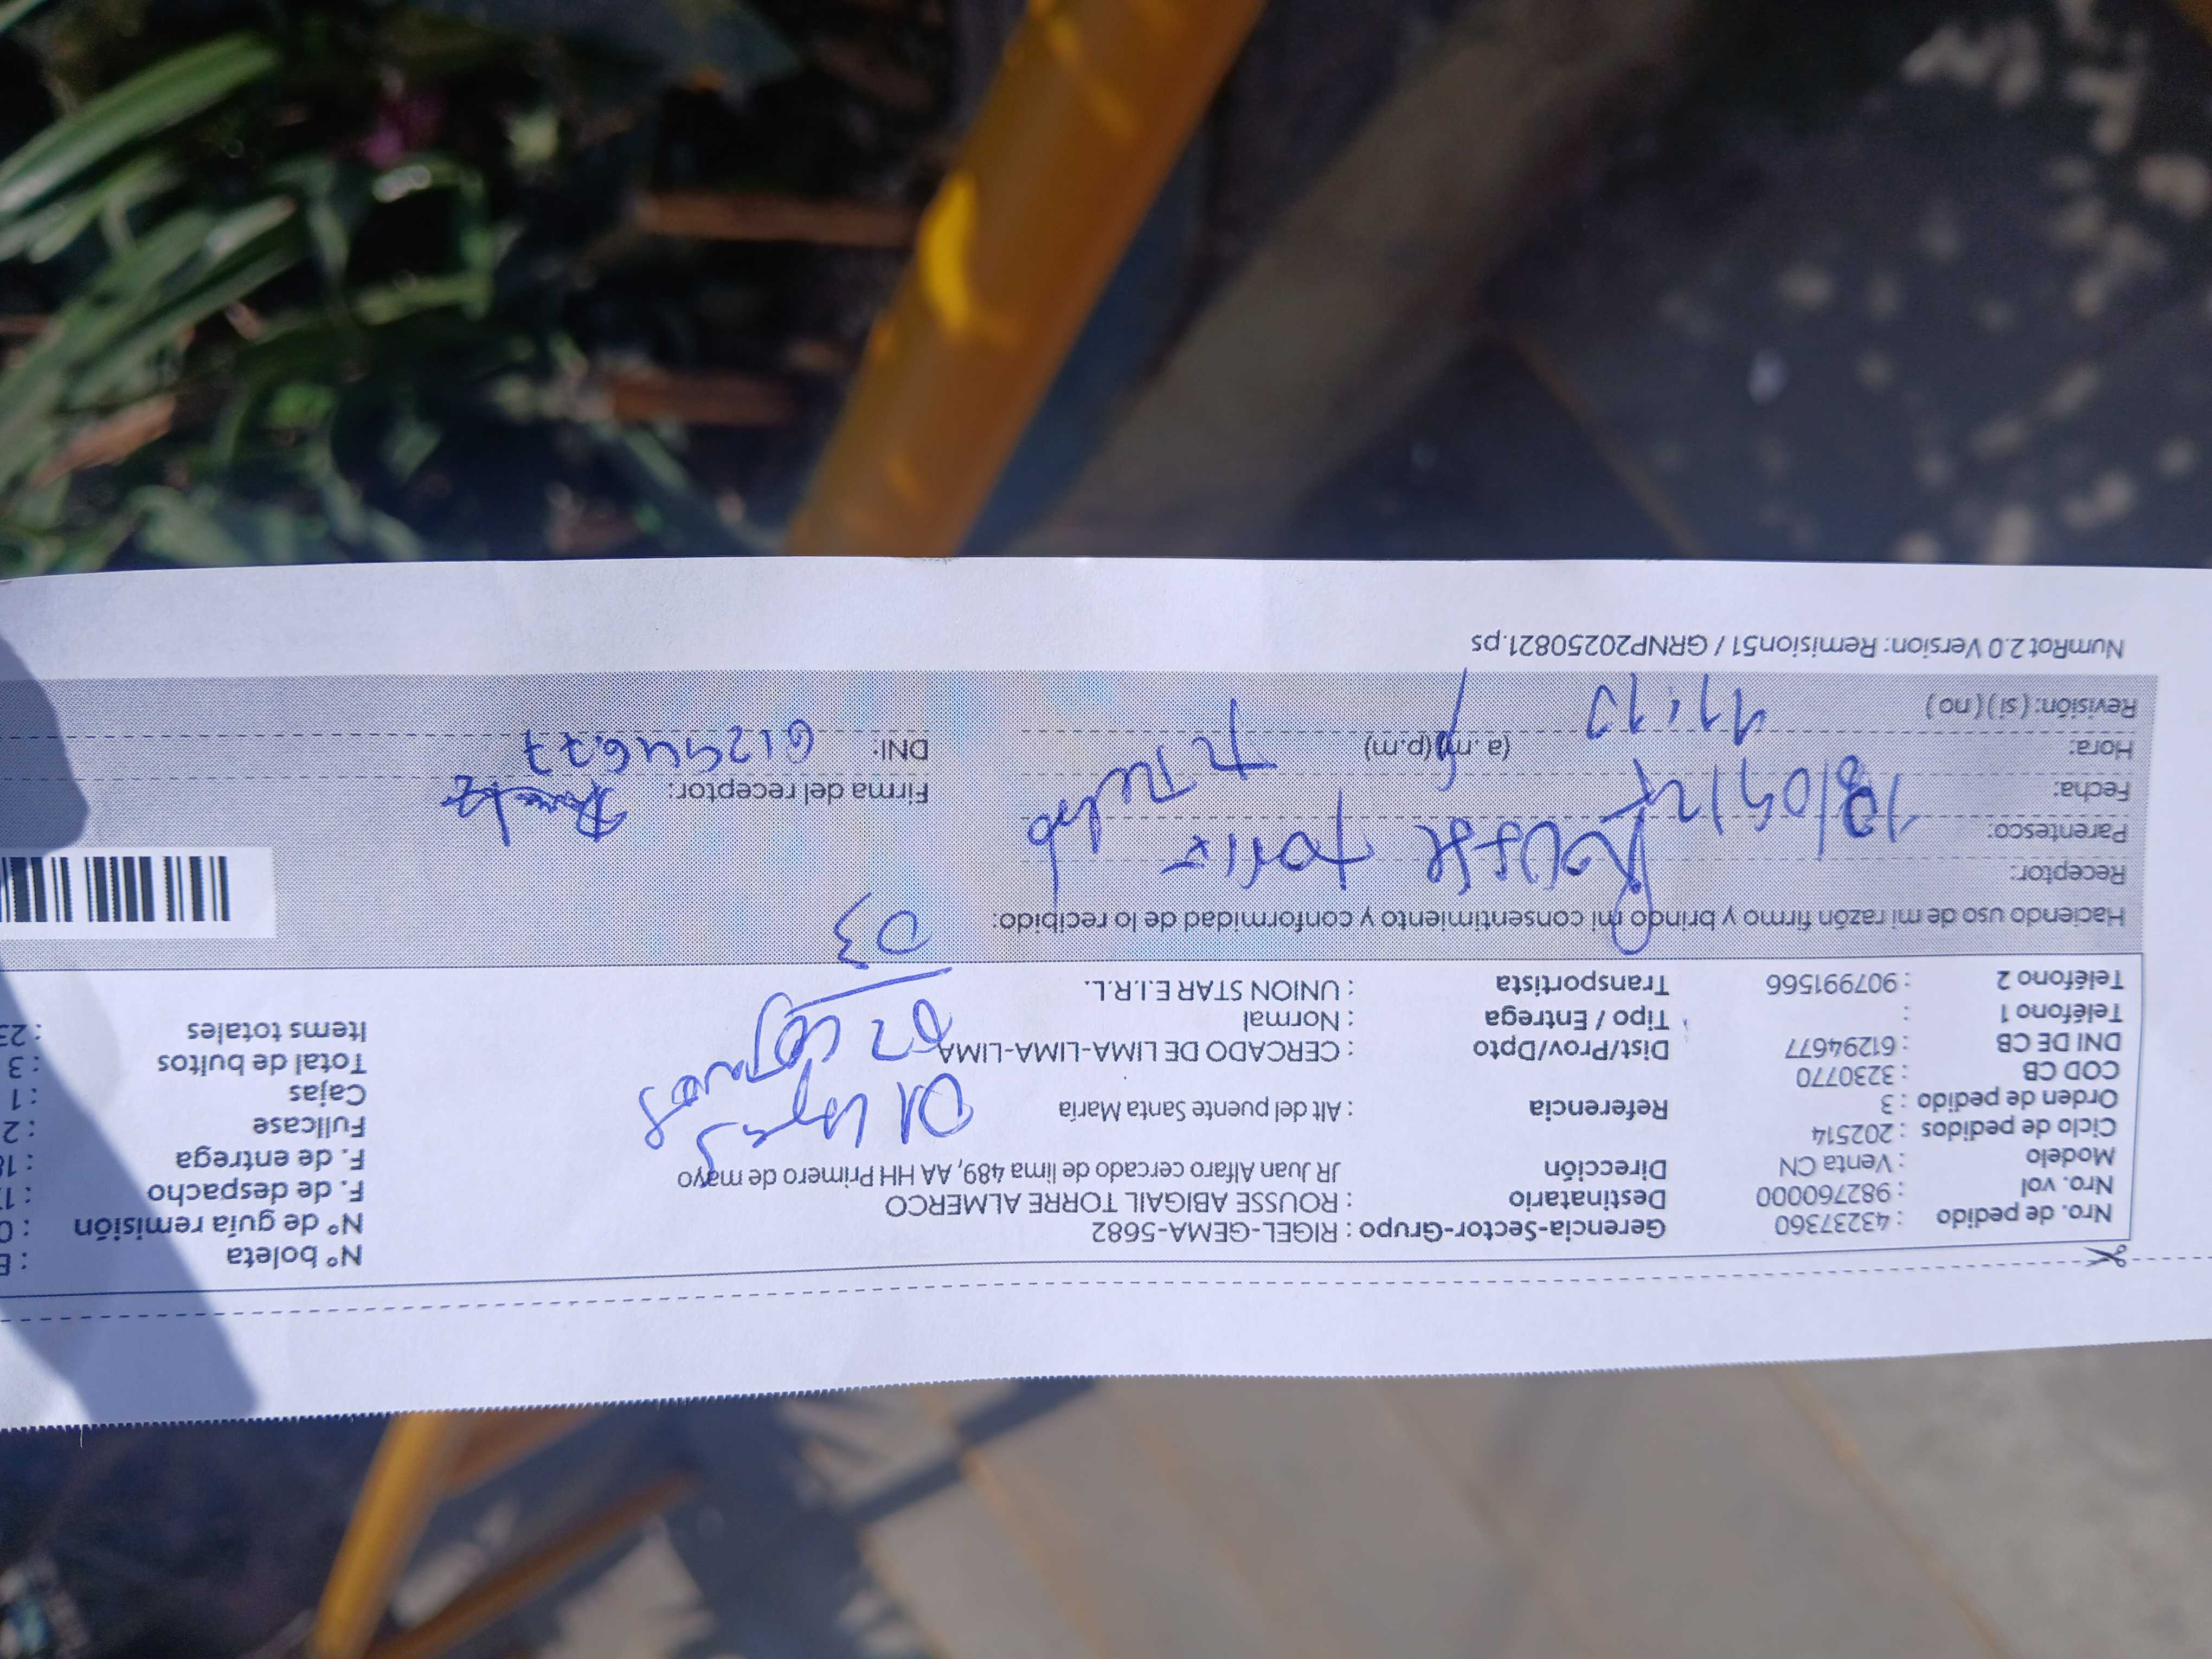 Nro. de pedido : 43237360 Gerencia-Sector-Grupo : RIGEL-GEMA-5682 N° boleta :
Nro. vol : 982760000 Destinatario : ROUSSE ABIGAIL TORRE ALMERCO N° de guía remisión : 0
Modelo : Venta CN Dirección JR Juan Alfaro cercado de lima 489, AA HH Primero de mayo F. de despacho : 1
Ciclo de pedidos : 202514 F. de entrega : 18
Orden de pedido : 3 Referencia : Alt del puente Santa María 01 Fullcase : 2
COD CB : 3230770 Cajas : 1
DNI DE CB : 61294677 Dist/Prov/Dpto : CERCADO DE LIMA-LIMA-LIMA 02 Total de bultos : 3
Teléfono 1 : Tipo / Entrega : Normal Items totales : 23
Teléfono 2 : 907991566 Transportista : UNION STAR E.I.R.L.
03
Haciendo uso de mi razón firmo y brindo mi consentimiento y conformidad de lo recibido:
Receptor: Rousse Torre
Parentesco: Titular
Fecha: Firma del receptor:
Hora: (a. m)(p.m) DNI: 61294677
Revisión: ( si ) ( no )
NumRot 2.0 Version: Remision51 / GRNP20250821.ps